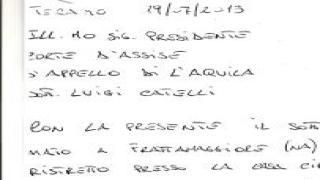 TERAMO 29/07/2013
ILL.MO SIG. PRESIDENTE
CORTE D'ASSISE
D'APPELLO DI L'AQUILA
DOTT. LUIGI CATELLI
CON LA PRESENTE IL SOTT
NATO A FRATTAMAGGIORE (NA)
RISTRETTO PRESSO LA CASA CIR